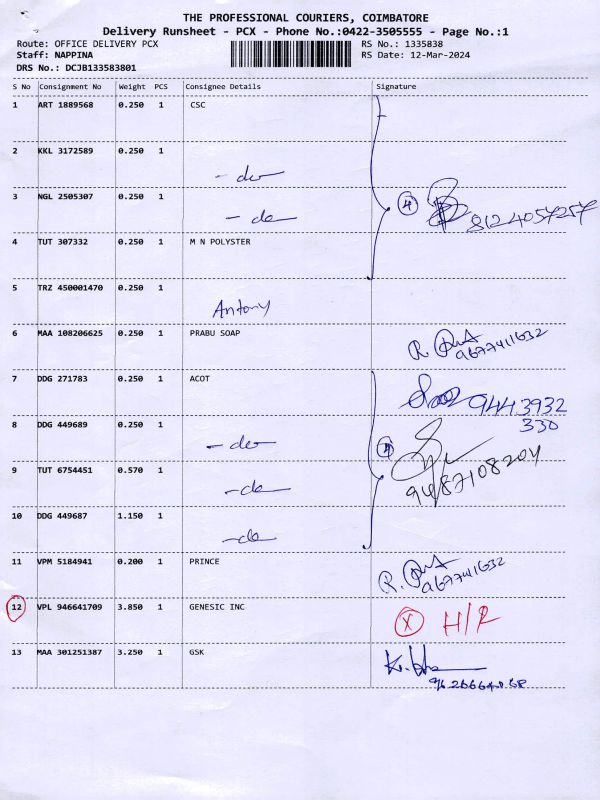 THE PROFESSIONAL COURIERS, COIMBATORE
Delivery Runsheet - PCX - Phone No.:0422-3505555 - Page No.:1
Route: OFFICE DELIVERY PCX RS No.: 1335838
Staff: NAPPINA RS Date: 12-Mar-2024
DRS No.: DCJB133583801
S No Consignment No Weight PCS Consignee Details Signature
1 ART 1889568 0.250 1 CSC
2 KKL 3172589 0.250 1
- do
3 NGL 2505307 0.250 1 4
- do 8124057257
4 TUT 307332 0.250 1 M N POLYSTER
5 TRZ 450001470 0.250 1
Antony
6 MAA 108206625 0.250 1 PRABU SOAP
9677411632
7 DDG 271783 0.250 1 ACOT
9443932
330
8 DDG 449689 0.250 1
- do 4
9 TUT 6754451 0.570 1 9487108204
- do
10 DDG 449687 1.150 1
- do
11 VPM 5184941 0.200 1 PRINCE
9677411632
12 VPL 946641709 3.850 1 GENESIC INC X H/R
13 MAA 301251387 3.250 1 GSK